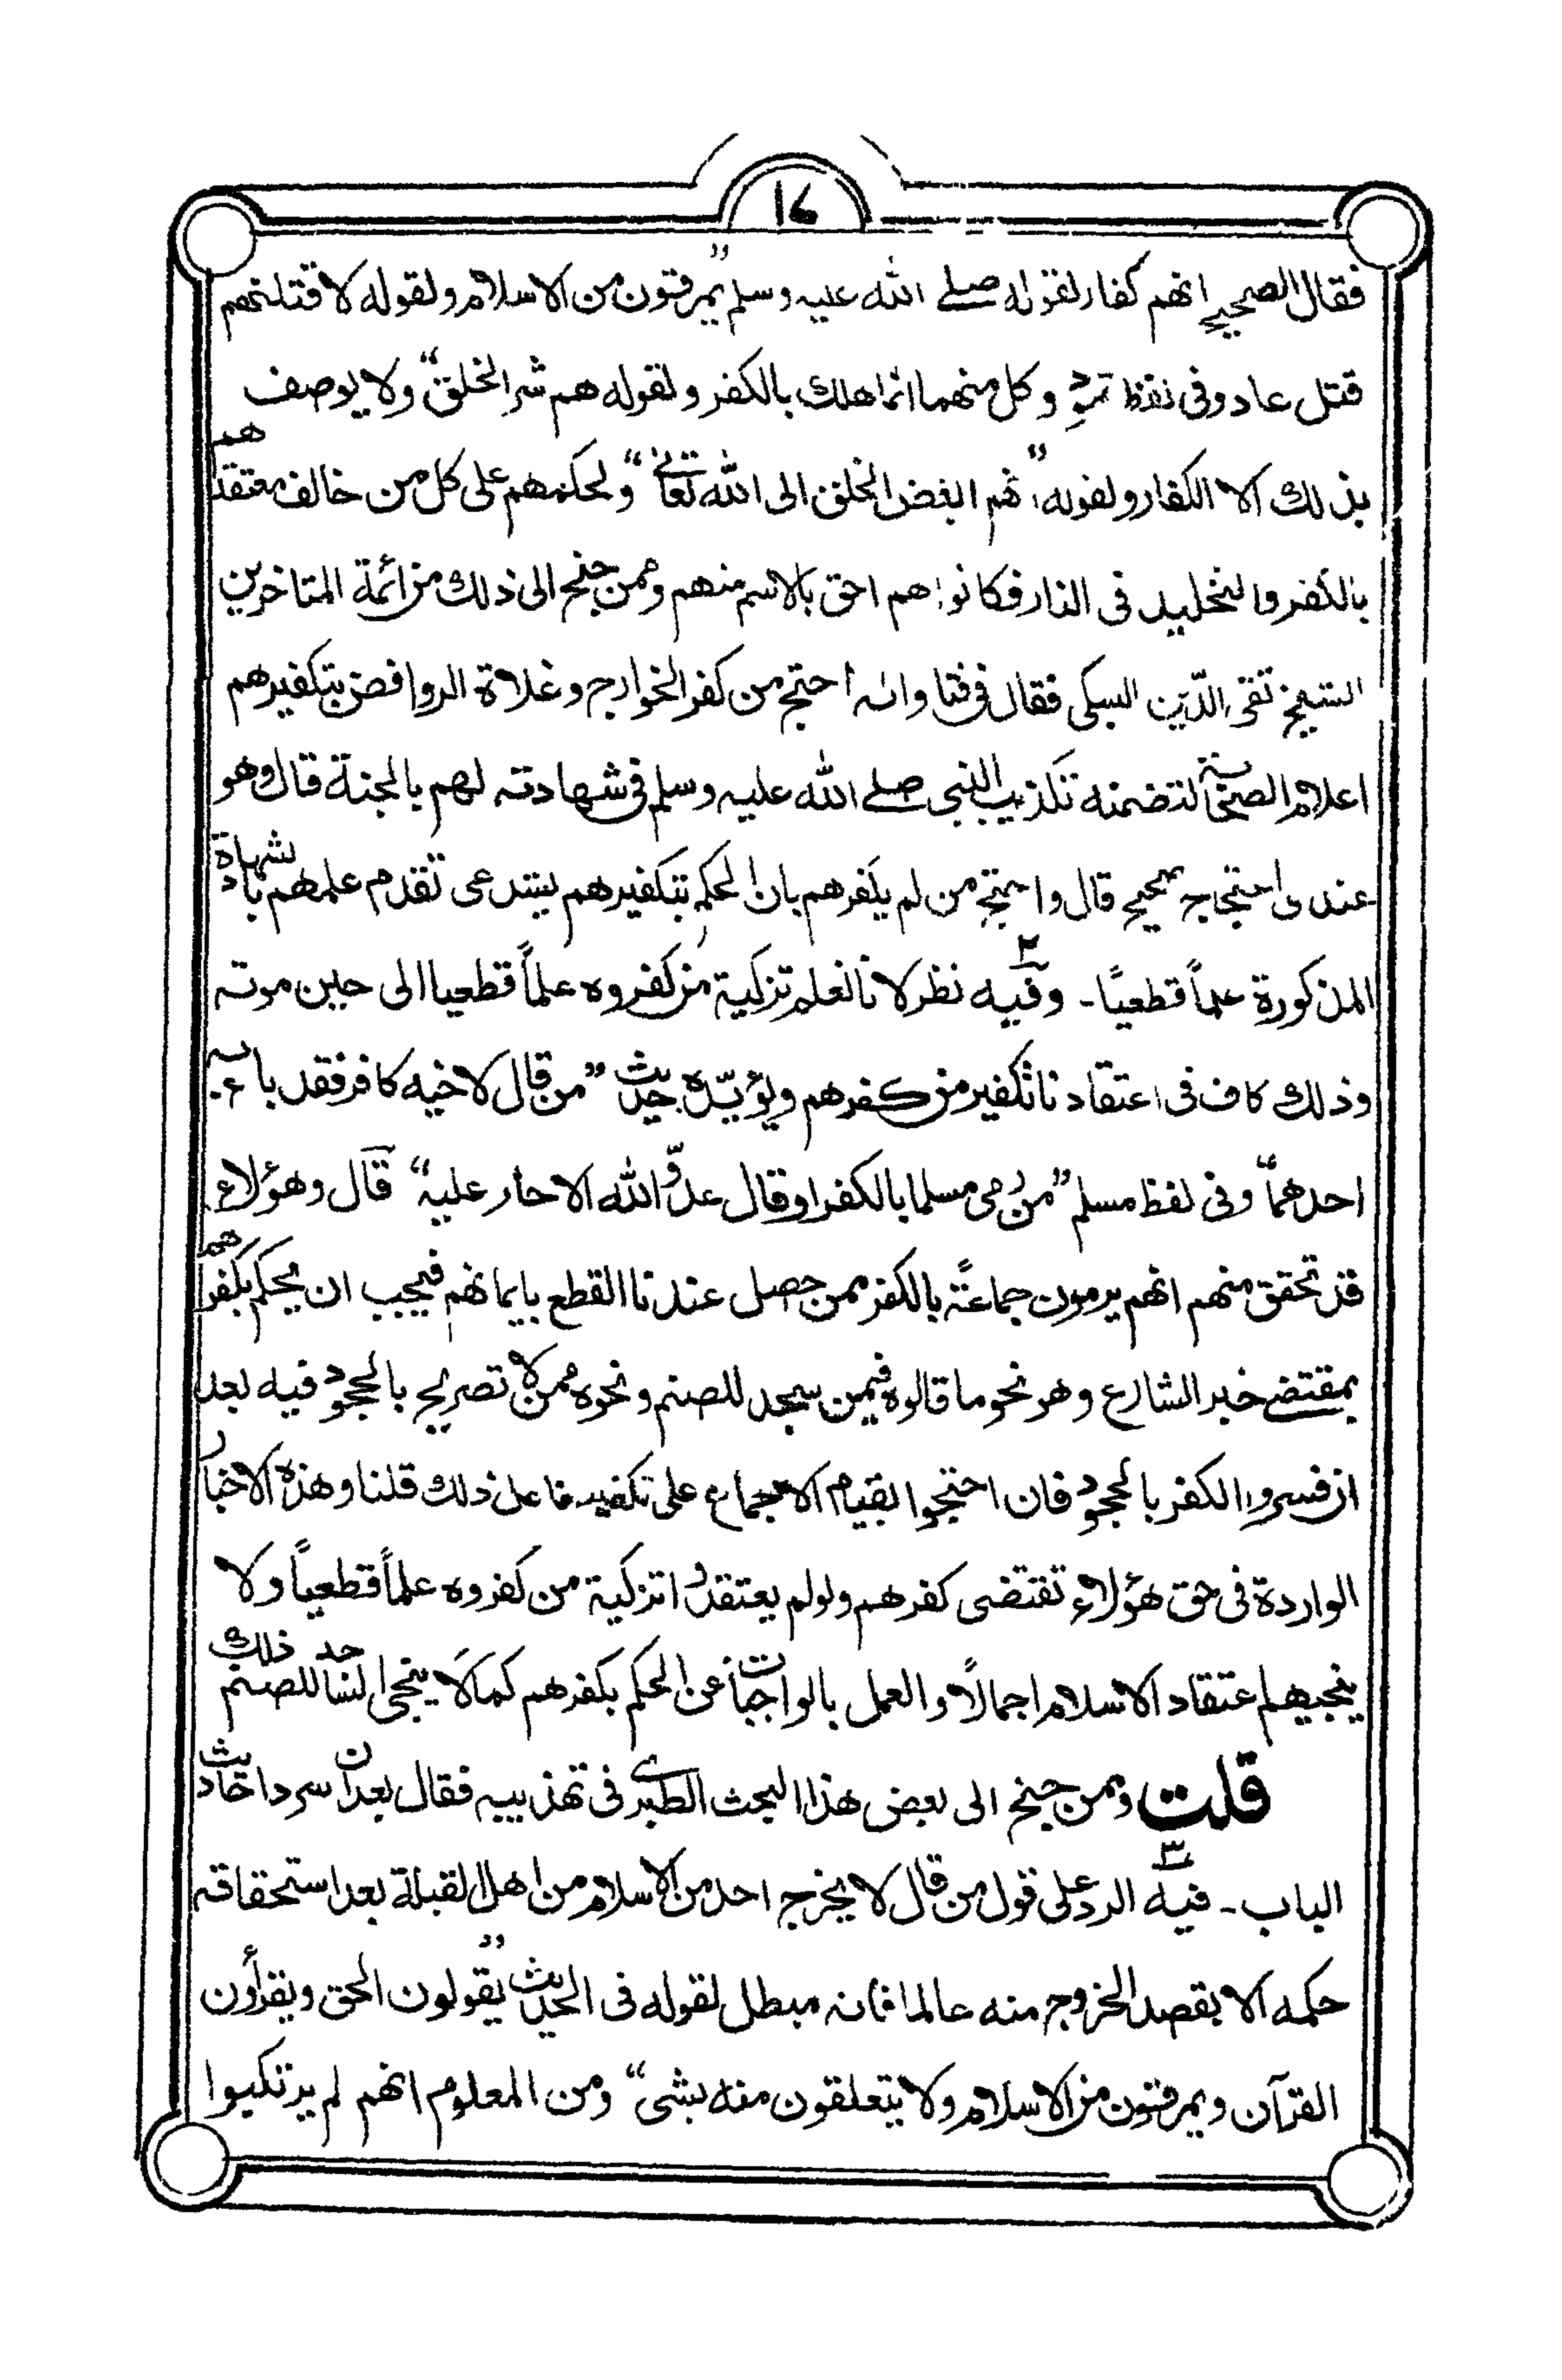 ١٤
فقال الصحيح انهم كفار لقوله صلے الله عليه وسلم "يمرقون من الاسلام ولقوله لاقتلنهم
قتل عاد وفی لفظ ثمود وكل منهما انما هلك بالكفر ولقوله هم شر الخلق" ولا يوصف
بذلك الا الكفار ولقوله "انهم ابغض الخلق الى الله تعالى" ولحكمهم على كل من خالف معتقدهم
بالكفر والتخليد فی النار فكانوا هم احق بالاسم منهم وممن جنح الى ذلك من ائمة المتاخرين
الشيخ تقی الدّين السبكی فقال فی فتاواه احتج من كفر الخوارج وغلاة الروافض بتكفيرهم
اعلام الصحابة لتضمنه تكذيب النبی صلے الله عليه وسلم فی شهادته لهم بالجنة قال وهو
عندی احتجاج صحيح قال واحتج من لم يكفرهم بان الحكم بتكفيرهم يستدعی تقدم علمهم بالشهادة
المذكورة علماً قطعيًا۔ وفيه نظر لانا نعلم تزكية من كفروه علماً قطعيا الى حين موته
وذلك كاف فی اعتقادنا تكفير من كفرهم ويؤيّده حديث "من قال لاخيه كافر فقد باء به
احدهما" وفی لفظ مسلم "من رمی مسلما بالكفر او قال عدوّ الله الا حار عليه" قال وهؤلاء
قد تحقق منهم انهم يرمون جماعة بالكفر ممن حصل عندنا القطع بايمانهم فيجب ان يحكم بكفرهم
بمقتضے خبر الشارع وهو نحو ما قالوه فيمن سجد للصنم ونحوه ممن لا تصريح بالجحود فيه بعد
ان فسروا الكفر بالجحود فان احتجوا بقيام الاجماع على تكفير فاعل ذلك قلنا وهذه الاخبار
الواردة فی حق هؤلاء تقتضی كفرهم ولو لم يعتقدوا تزكية من كفروه علماً قطعياً ولا
ينجيهم اعتقاد الاسلام اجمالاً والعمل بالواجبات عن الحكم بكفرهم كما لا ينجی الساجد للصنم ذلك
قلت وممن جنح الى بعض هذا البحث الطبری فی تهذيبه فقال بعد ان سرد احاديث
الباب۔ فيه الرد على قول من قال لا يخرج احد من الاسلام من اهل القبلة بعد استحقاقه
حكمه الا بقصد الخروج منه عالما فانه مبطل لقوله فی الحديث "يقولون الحق ويقرأون
القرآن ويمرقون من الاسلام ولا يتعلقون منه بشی" ومن المعلوم انهم لم يرتكبوا